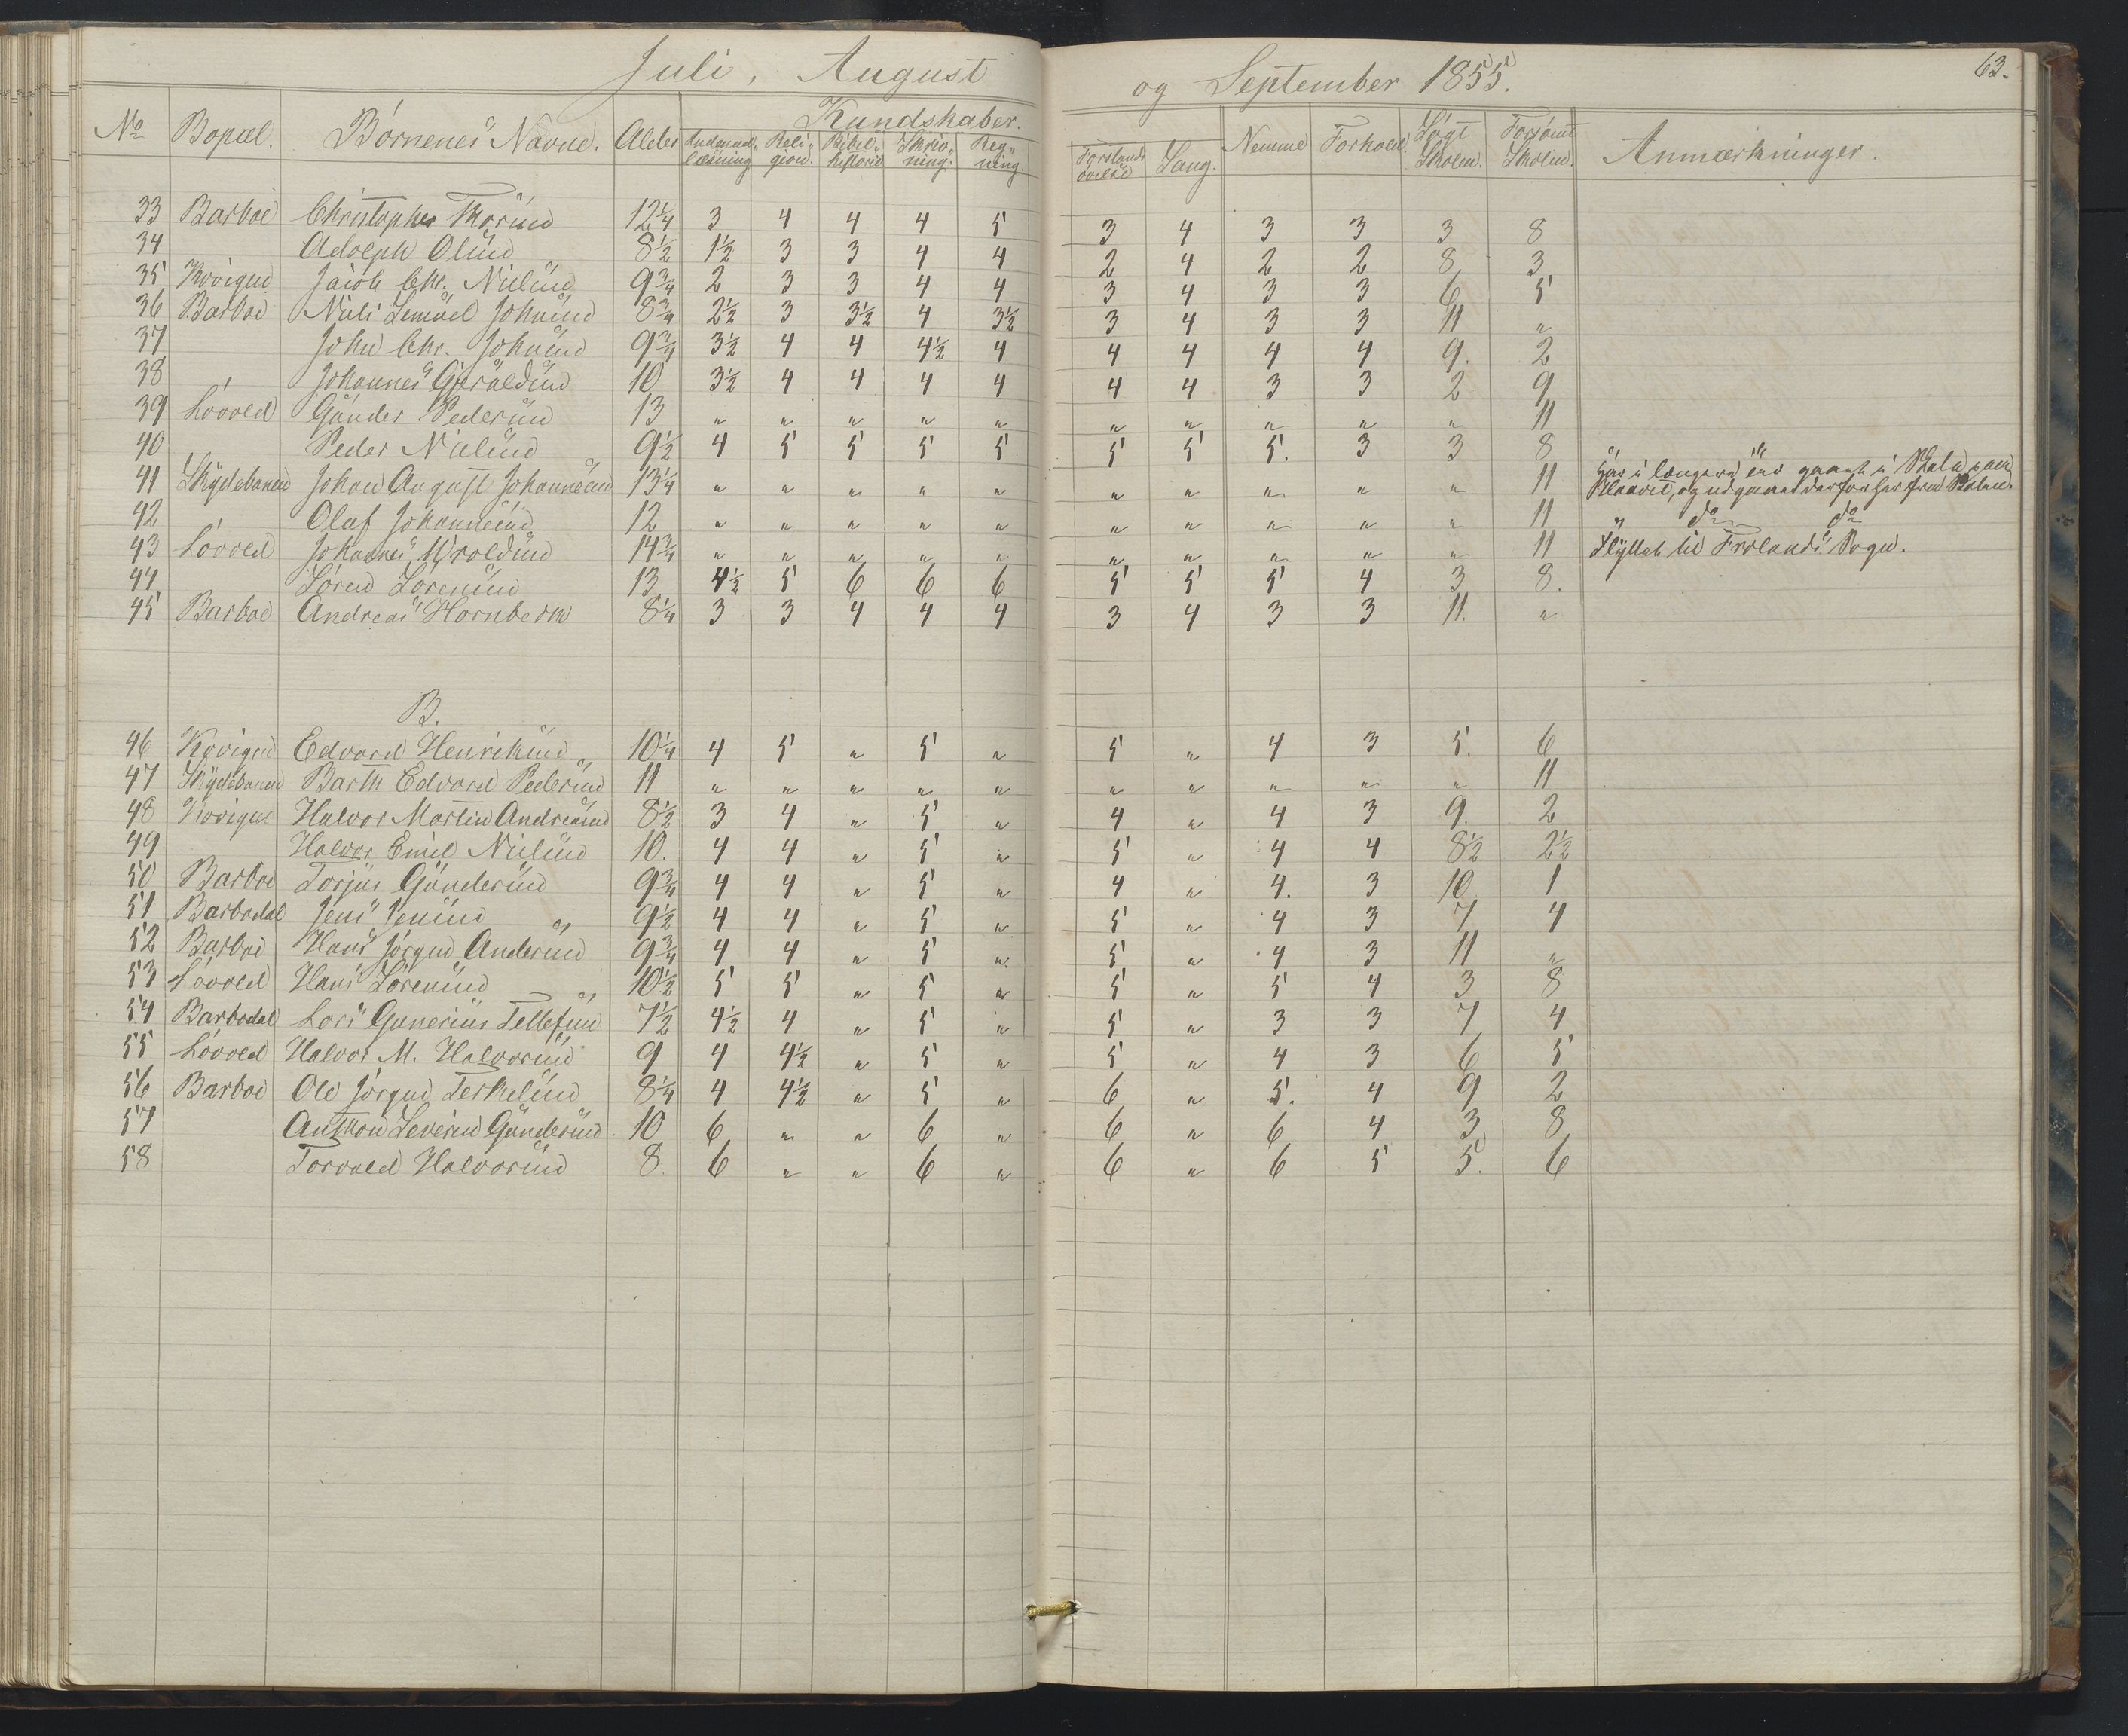 Juli, August og September 1855. 63.
No Bopæl. Børnenes Navne. Alder Kundskaber. Nemme Forhold. Søgt Skolen. Forsømt Skolen. Anmærkninger.
Indenadlæsning Religion. Bibelhistorie Skrivning. Regning. Forstandsøvelse Sang.
33 Barboe 12 1/4 3 4 4 4 5 3 4 3 3 3 8
34 Adolph Olsen 8 1/2 1 1/2 3 3 4 4 2 4 2 2 8 3
35 Kvvigen Jacob Chr. Nielsen 9 3/4 2 3 3 4 4 3 4 3 3 6 5
36 Barboe Niels Lemvel Johnsen 8 3/4 2 1/2 3 3 1/2 4 3 1/2 3 4 3 3 11 "
37 John Chr. Johnsen 9 3/4 3 1/2 4 4 4 1/2 4 4 4 4 4 9. 2
38 Johannes Gjeruldsen 10 3 1/2 4 4 4 4 4 4 3 3 2 9
39 Løvold Gunder Pedersen 13 " " " " " " " " " " 11
40 Peder Nielsen 9 1/2 4 5 5 5 5 5 5 5. 3 3 8
41 Skydebanen Johan August Johannesen 13 1/4 " " " " " " " " " " 11
42 Oluf Johannesen 12 " " " " " " " " " " 11 " do do
43 Løvold Johannes Wroldsen 14 3/4 " " " " " " " " " " 11 Flyttet til Frolands Sogn.
44 Søren Sørensen 13 4 1/2 5 6 6 6 5 5 5 4 3 8.
45 Barboe Andreas Hornbech 8 1/4 3 3 4 4 4 3 4 3 3 11. "
B.
46 Kvvigen Edvard Henriksen 10 1/4 4 5 " 5 " 5 " 4 3 5. 6
47 Skydebanen Barth Edvard Pedersen 11 " " " " " " " " " " 11
48 Kvvigen Halvor Martin Andreasen 8 1/2 3 4 " 5 " 4 " 4 3 9. 2
49 Halvor Emil Nielsen 10. 4 4 " 5 " 5 " 4 4 8 1/2 2 1/2
50 Barboe Torjus Gundersen 9 3/4 4 4 " 5 " 4 " 4. 3 10 1
51 Barbodal Jens Jensen 9 1/2 4 4 " 5 " 5 " 4 3 7 4
52 Barboe Hans Jørgen Andersen 9 3/4 4 4 " 5 " 5 " 4 3 11 "
53 Løvold Hans Sørensen 10 1/2 5 5 " 5 " 5 " 5 4 3 8
54 Barbodal Lars Gunerius Tellefsen 7 1/2 4 1/2 4 " 5 " 5 " 3 3 7 4
55 Løvold Halvor M. Halvorsen 9 4 4 1/2 " 5 " 5 " 4 3 6 5
56 Barboe Ole Jørgen Terkelsen 8 1/4 4 4 1/2 " 5 " 6 " 5. 4 9 2
57 Anthon Severin Gundersen 10 6 " " 6 " 6 " 6 4 3 8
58 Torvald Halvorsen 8. 6 " " 6 " 6 " 6 5 5. 6